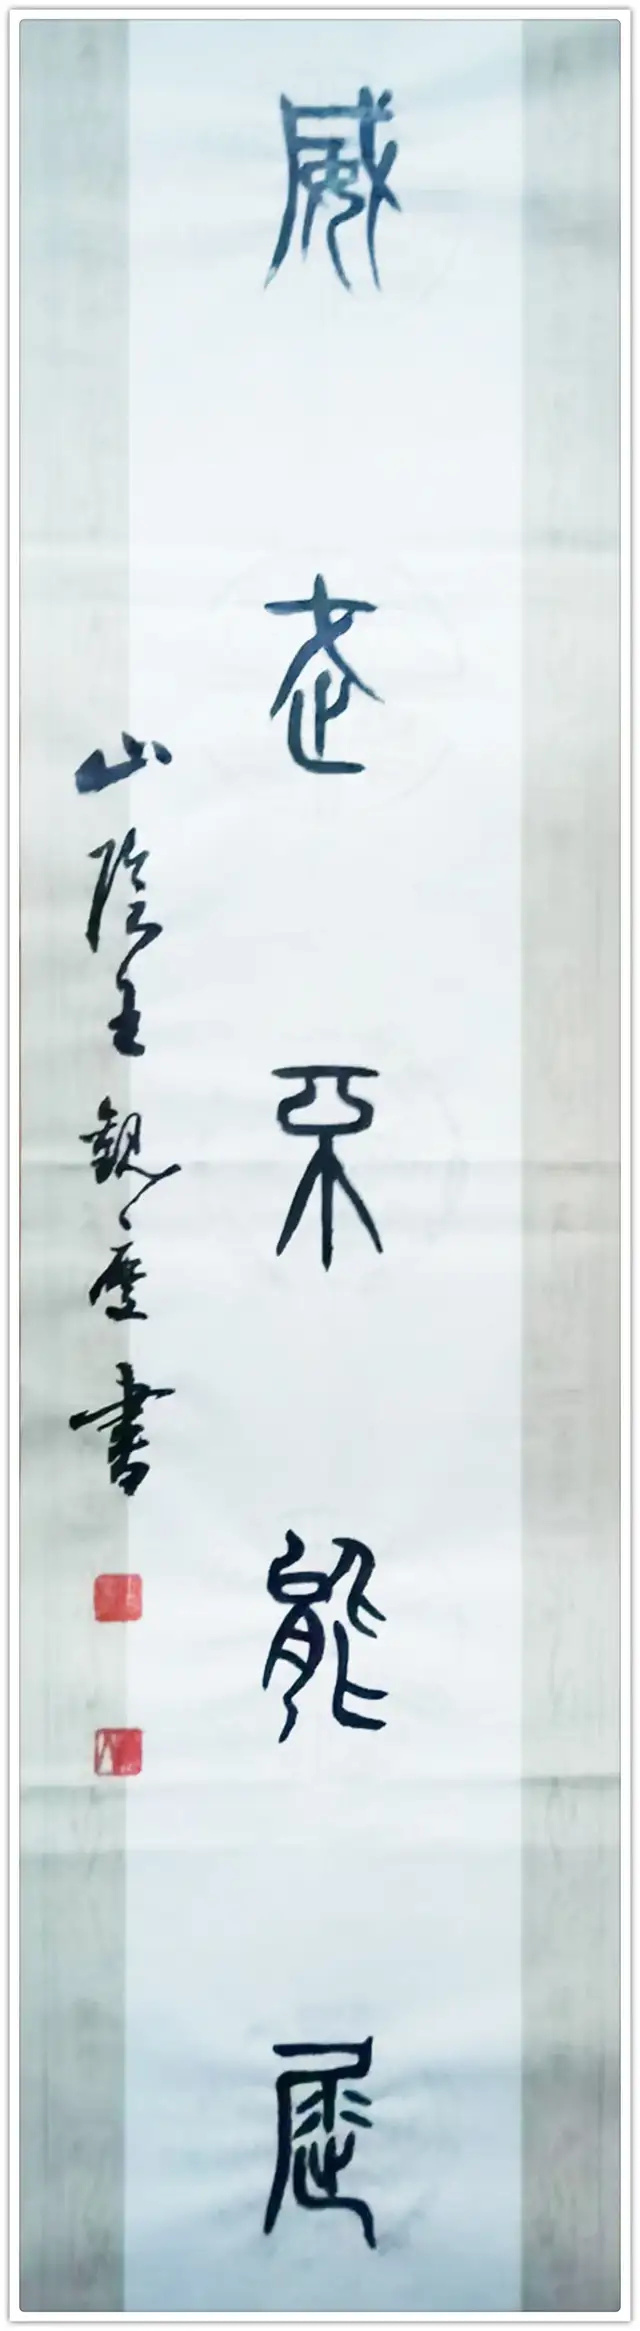 威武不能屈
山陰王書